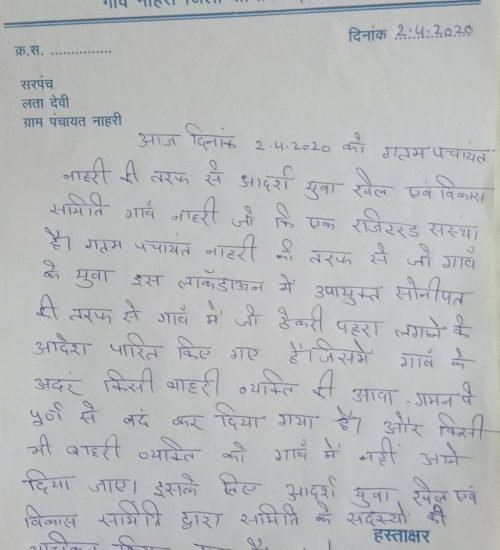 गाँव नाहरी जिला
दिनांक 2.4.2020
क्र.स. ...............
सरपंच
लता देवी
ग्राम पंचायत नाहरी
आज दिनांक 2.4.2020 को ग्राम पंचायत
नाहरी की तरफ से आदर्श युवा खेल एवं विकास
समिति गाँव नाहरी जो कि एक रजिस्टर्ड संस्था
है। ग्राम पंचायत नाहरी की तरफ से जो गाँव
के युवा इस लॉकडाऊन में उपायुक्त सोनीपत
की तरफ से गाँव में जो ठेकरी पहरा लगाने के
आदेश पारित किए गए हैं। जिसमें गाँव के
अदंर किसी बाहरी व्यक्ति की आवा-गमन पे
पूर्ण से बदं कर दिया गया है। और किसी
भी बाहरी व्यक्ति को गाँव में नहीं आने
दिया जाए। इसके लिए आदर्श युवा खेल एवं
विकास समिति द्वारा समिति के सदस्यों की
हस्ताक्षर